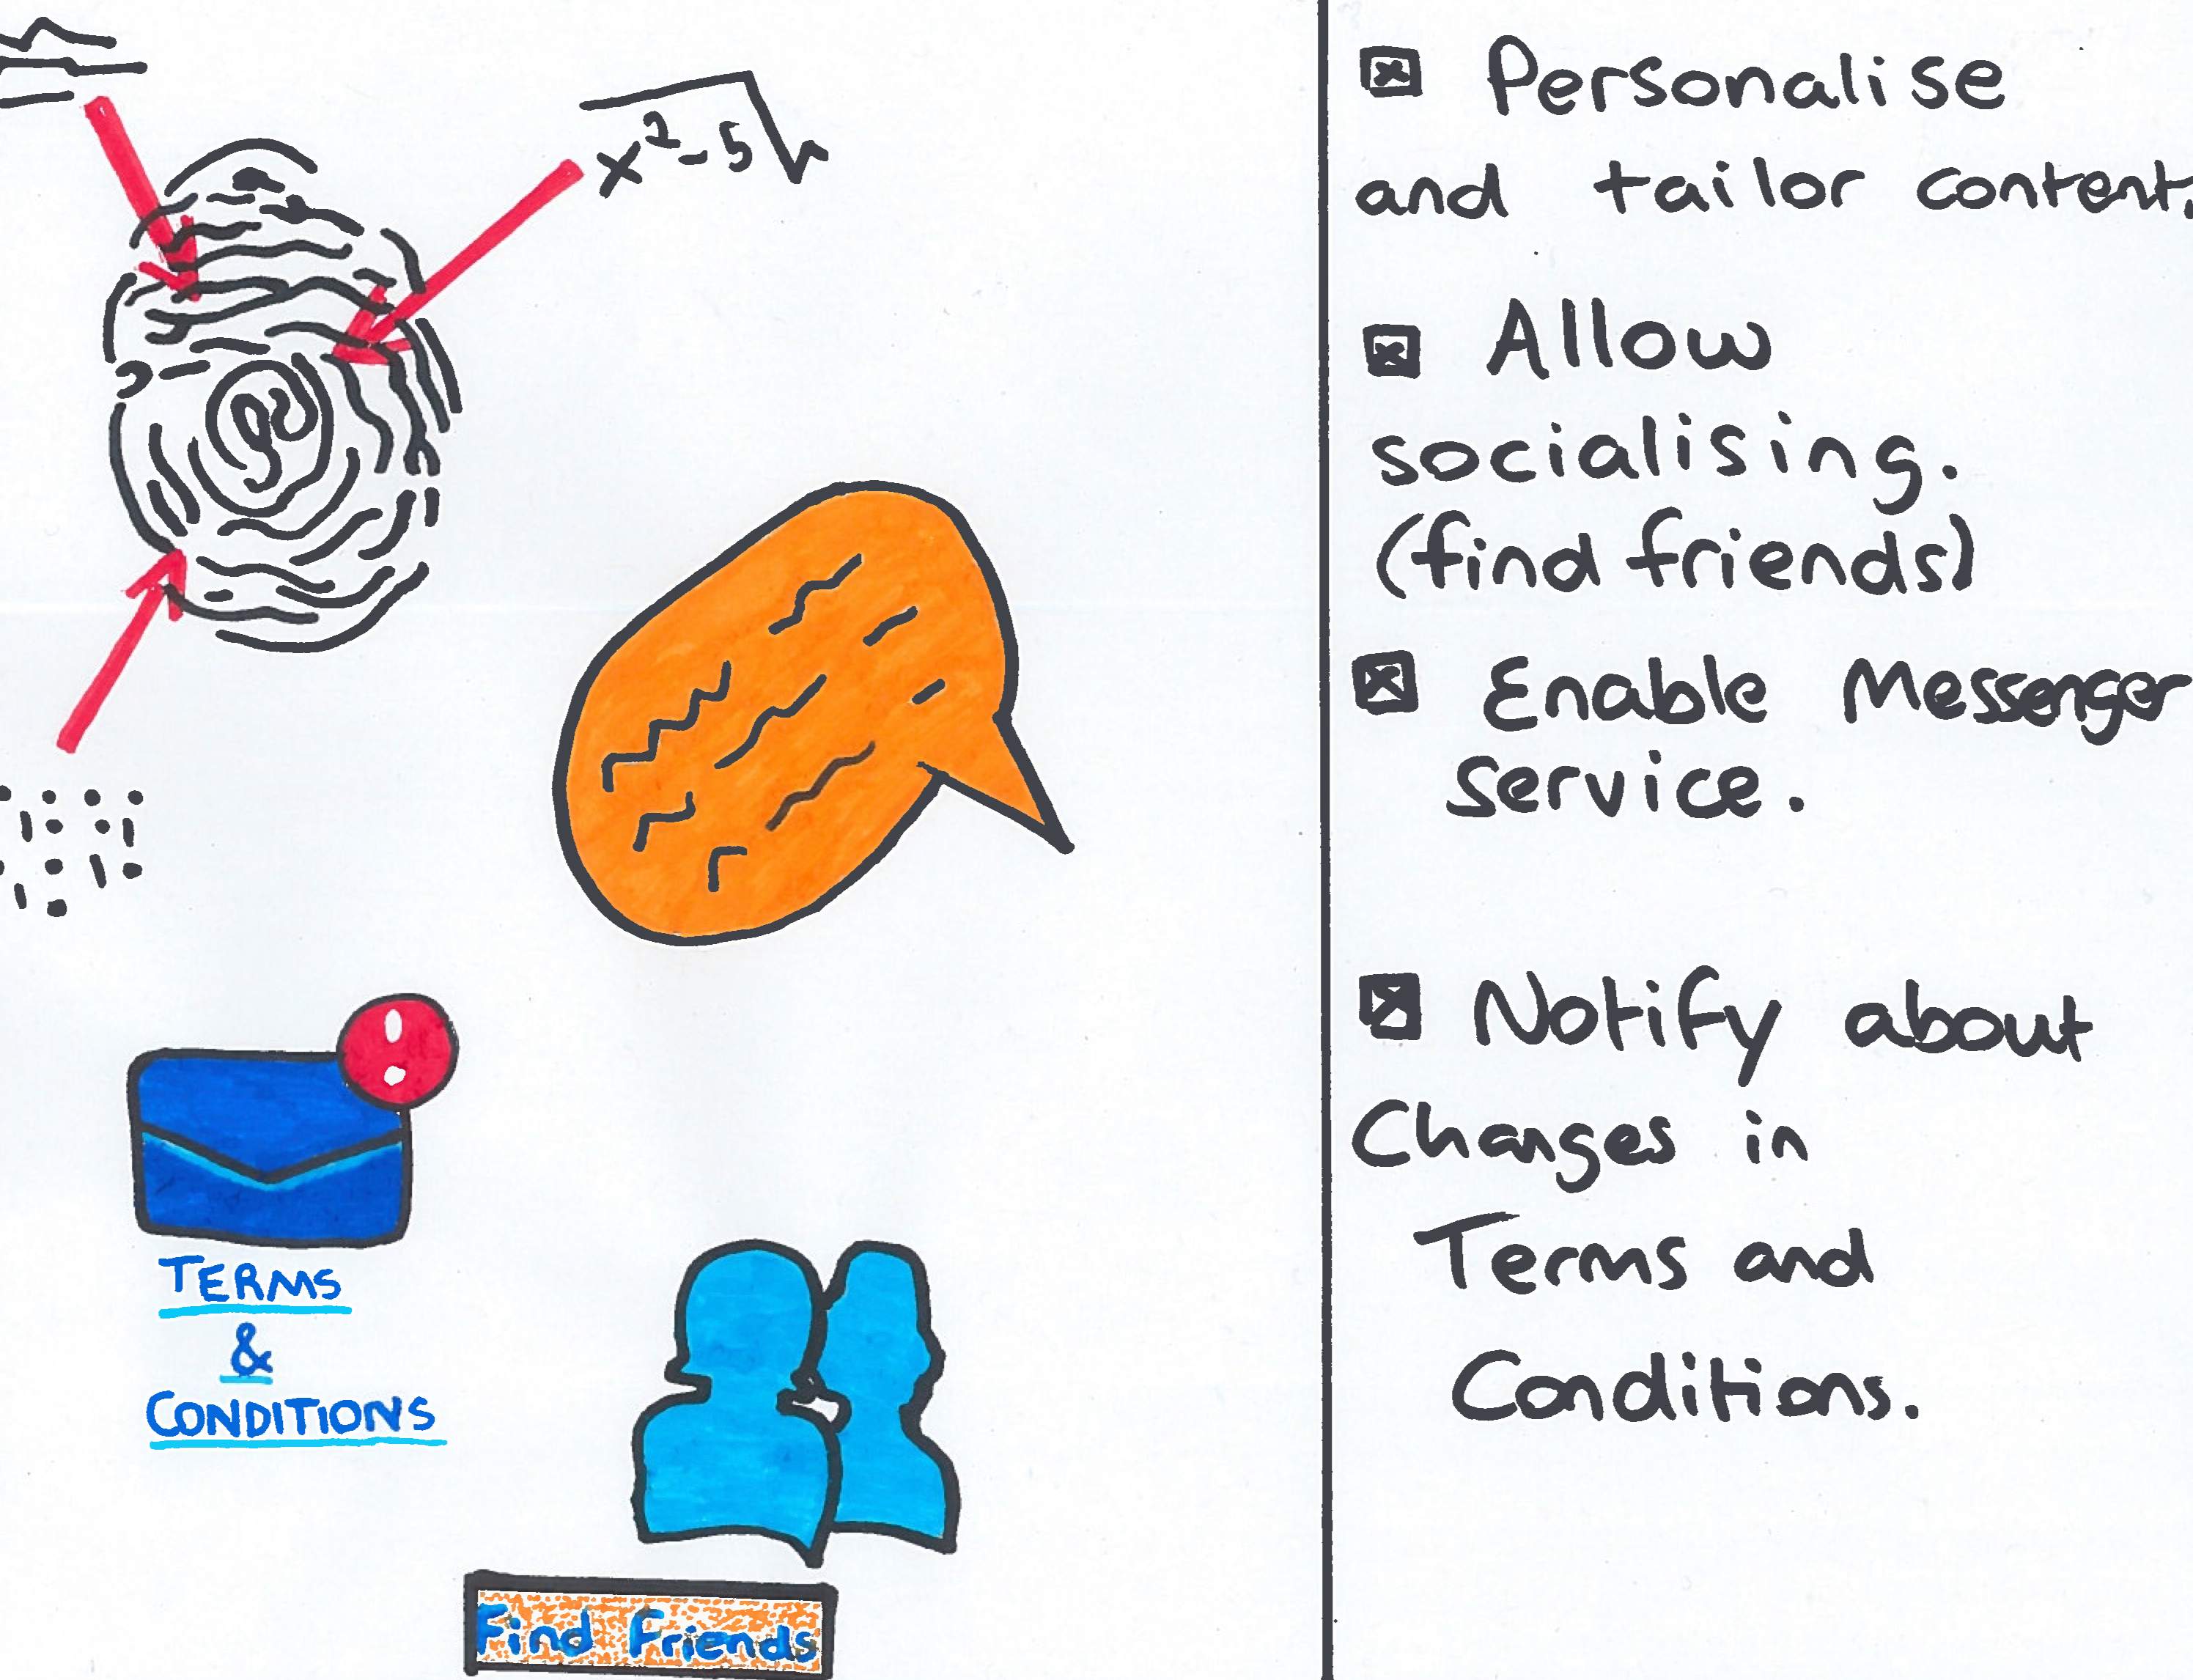 x²-5
TERMS
&
CONDITIONS
Find Friends
Personalise
and tailor content.
Allow
socialising.
(find friends)
Enable Messenger
service.
Notify about
Changes in
Terms and
Conditions.